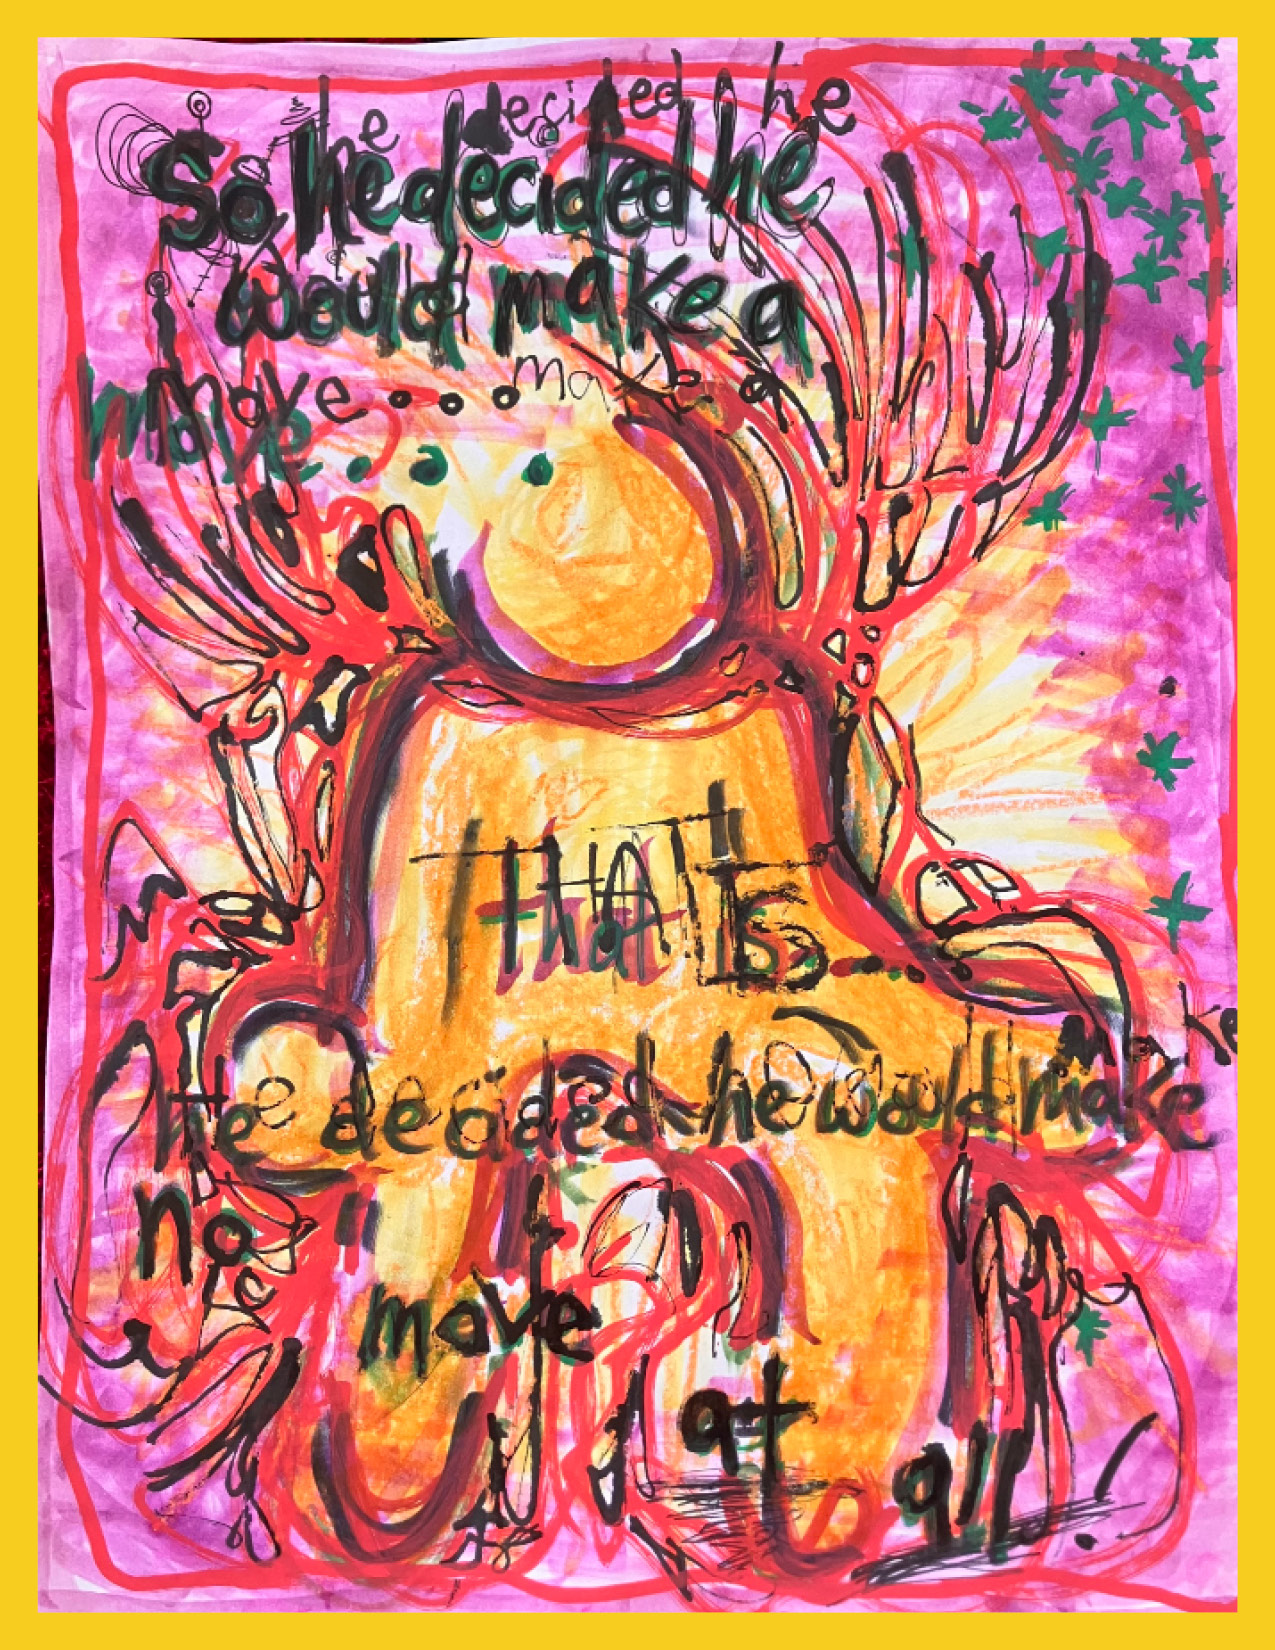 he desided he
So he decided he
would make a
move... make a
move...
THAT IS....
He decided he would make
no
move
at
all!